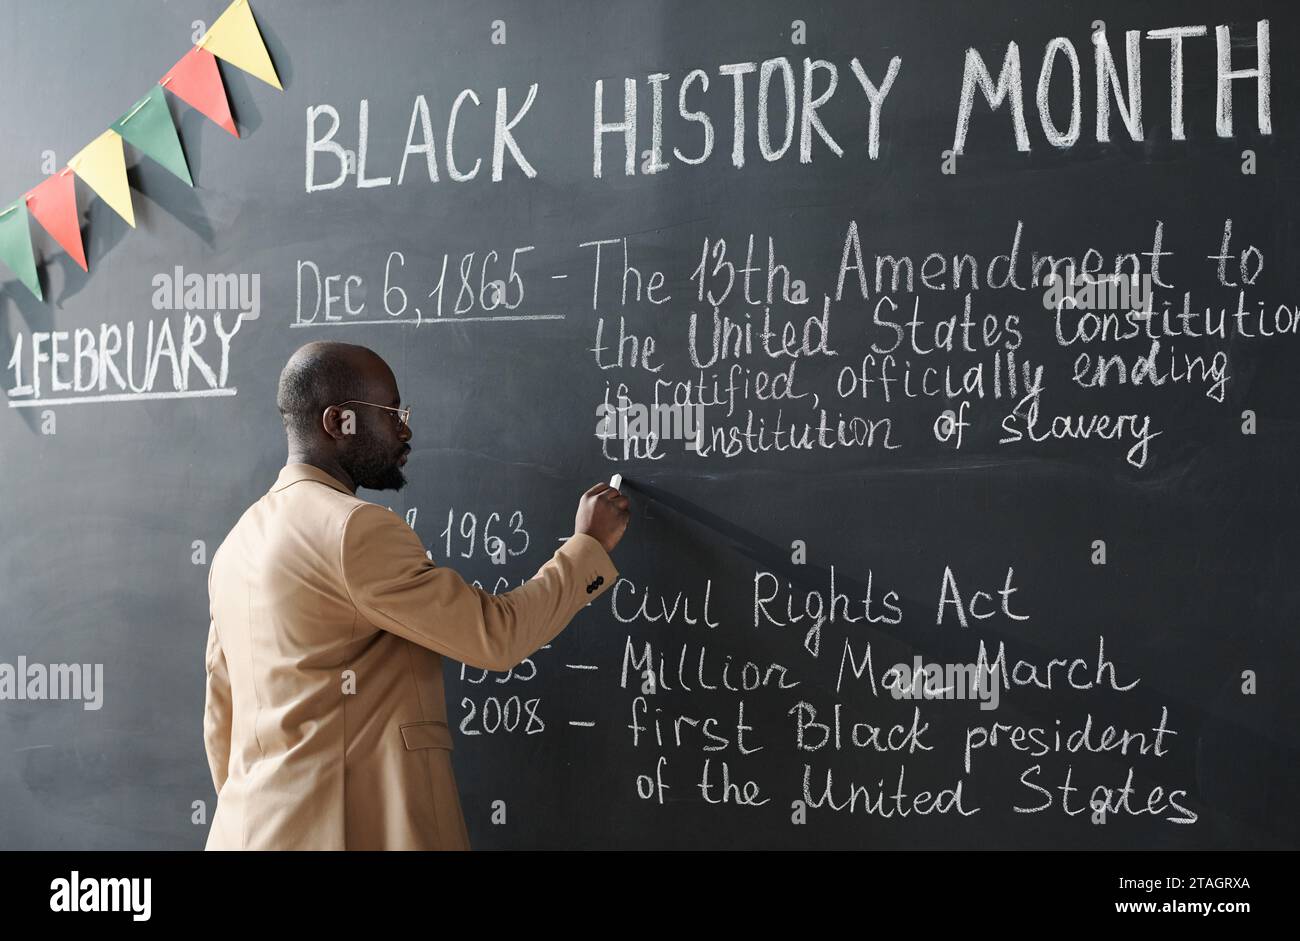 BLACK HISTORY MONTH
1 FEBRUARY
DEC 6, 1865 - The 13th Amendment to
the United States Constitution
is ratified, officially ending
the institution of slavery
, 1963 -
- Civil Rights Act
1995 - Million Man March
2008 - first Black president
of the United States
alamy
alamy
Image ID: 2TAGRXA
www.alamy.com